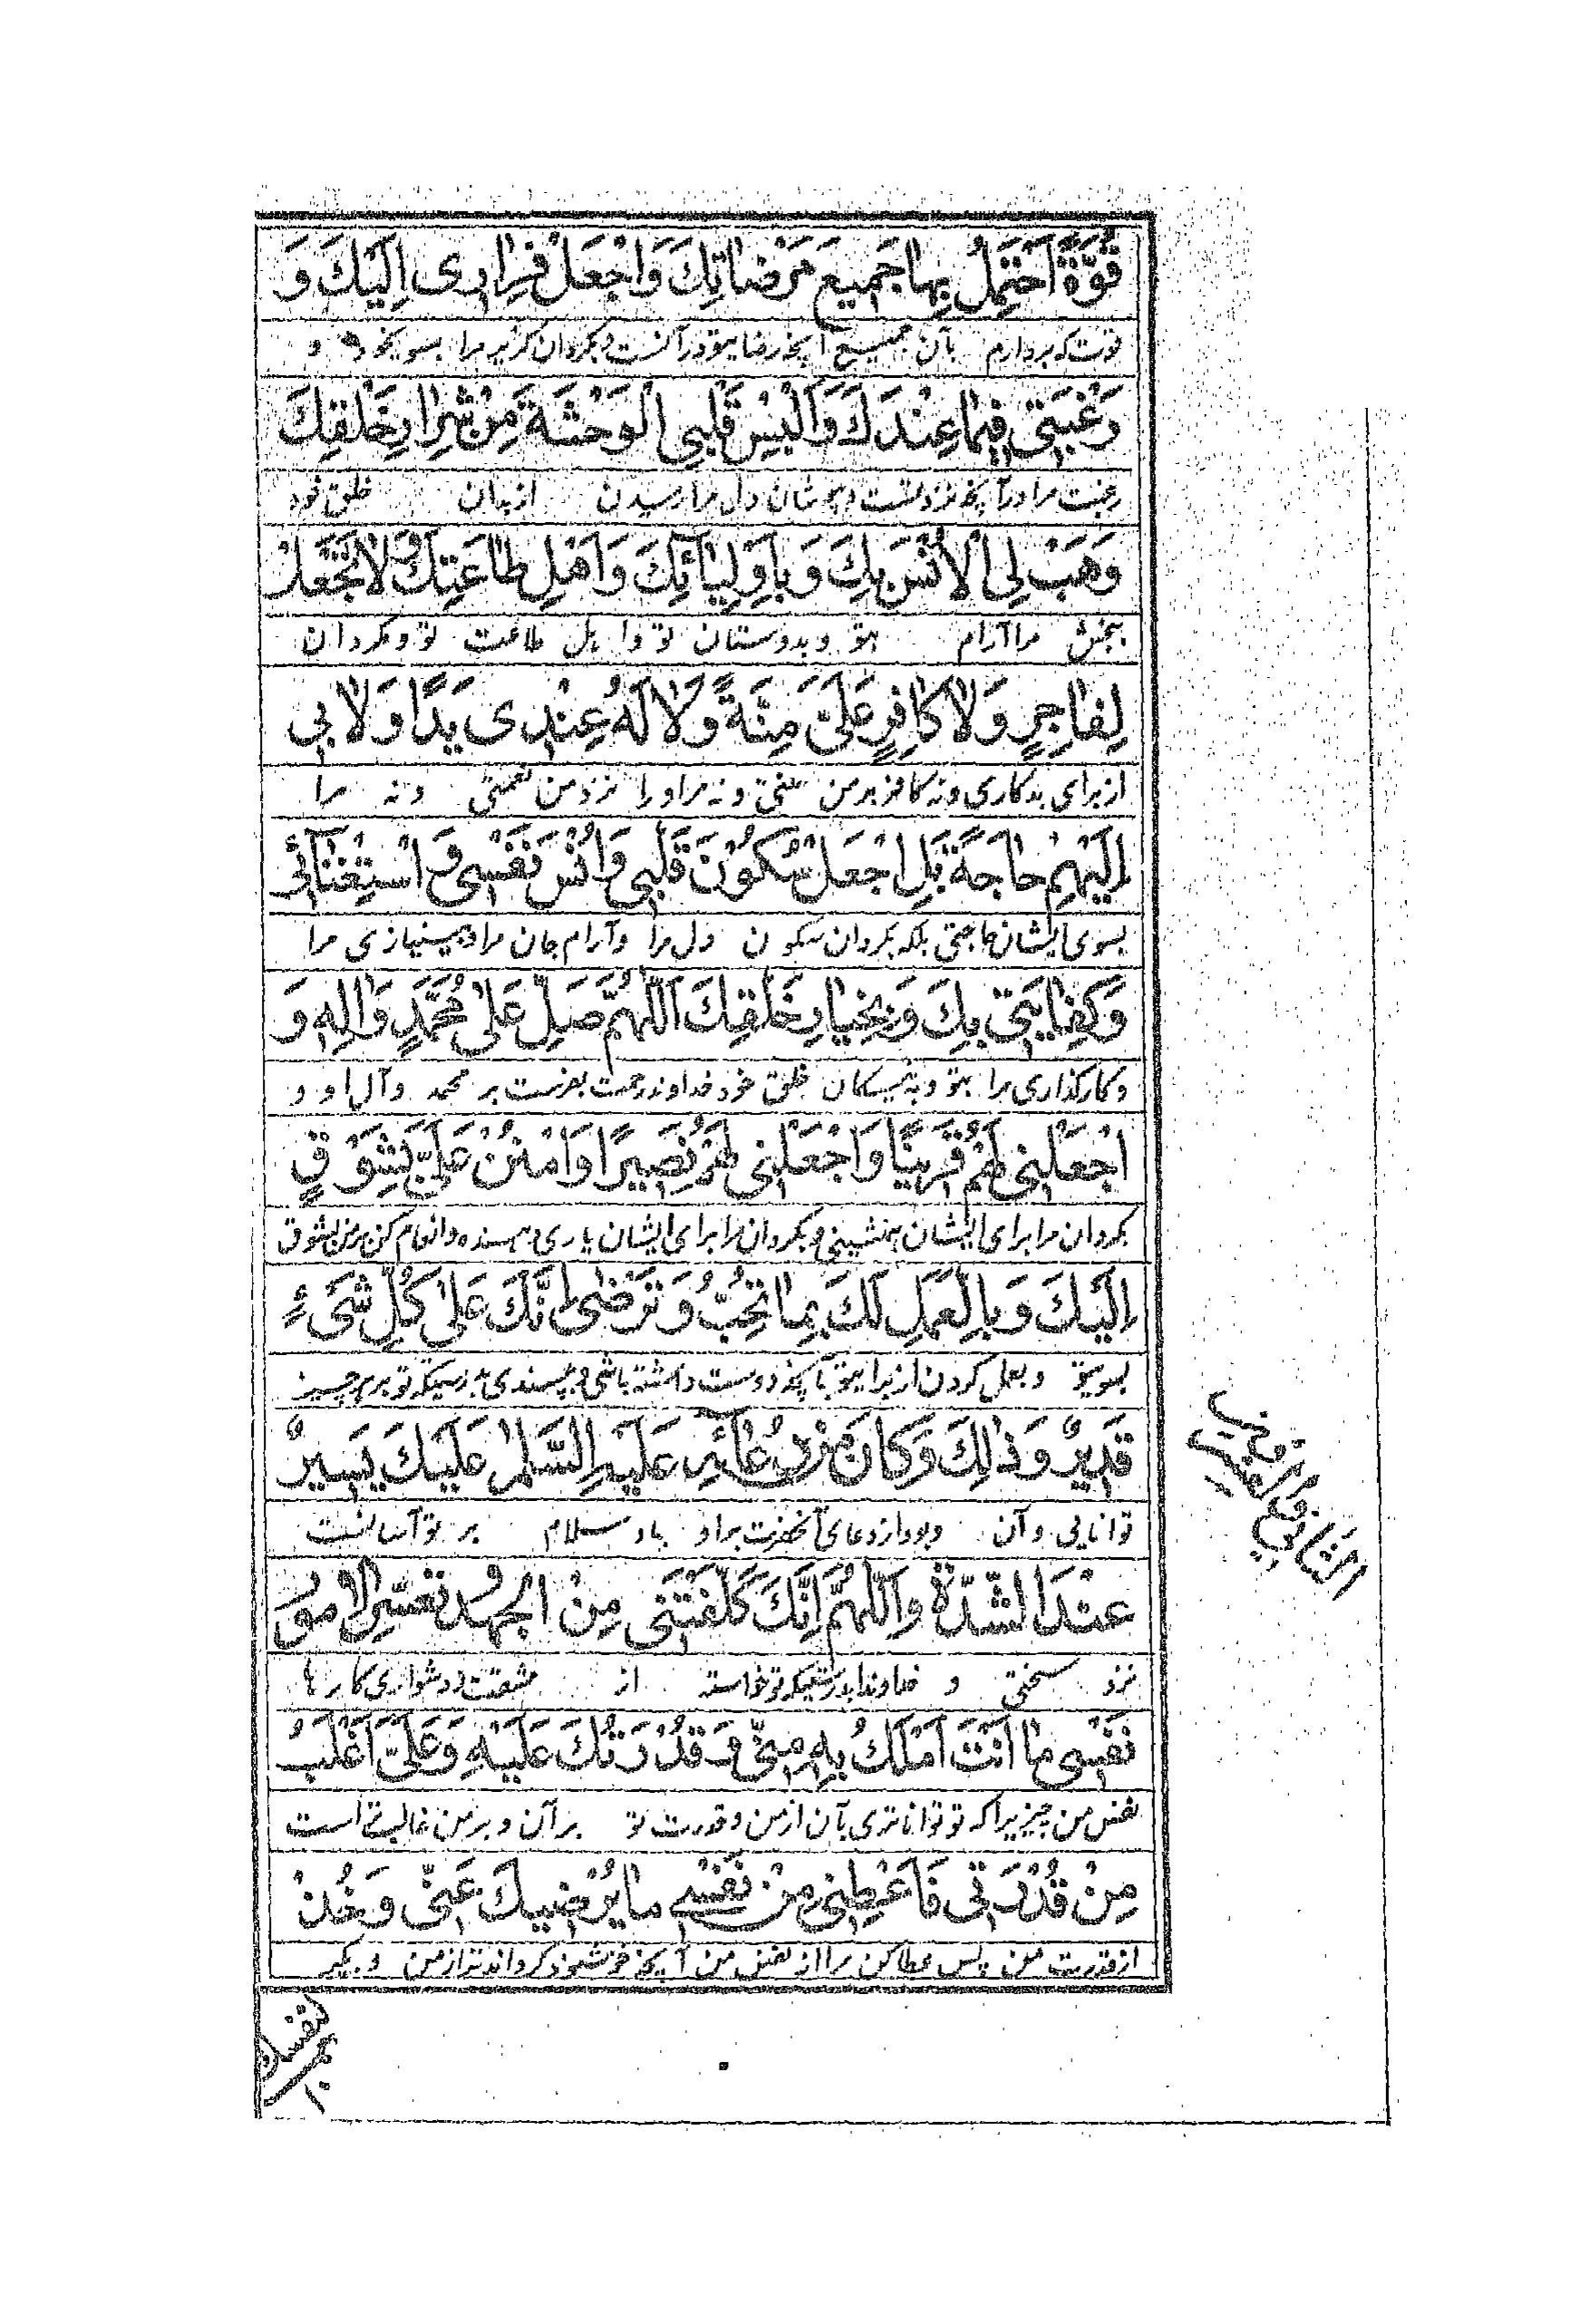 قُوَّةً اَحْتَمِلُ بِهٰا جَمِيعَ مَرْضٰاتِكَ وَاجْعَلْ فِرٰارِى اِلَيْكَ وَ
قوت که بردارم بآن جمیع آنچه رضایتو در آنست و بگردان گریز مرا بسویخود و
رَغْبَتِى فِيمٰا عِنْدَكَ وَاَلْبِسْ قَلْبِى الْوَحْشَةَ مِنْ شِرٰارِ خَلْقِكَ
رغبت مرا در آنچه نزد تست و بپوشان دل مرا رمیدن از بدان خلق خود
وَهَبْ لِى الْاُنْسَ بِكَ وَ بِاَوْلِيٰآئِكَ وَ اَهْلِ طٰاعَتِكَ وَلاٰ تَجْعَلْ
ببخش مرا آرام بتو و بدوستان تو و اهل طاعت تو و مگردان
لِفٰاجِرٍ وَلاٰ كٰافِرٍ عَلَىَّ مِنَّةً وَلاٰ لَهُ عِنْدِى يَدًا وَلاٰ بِى
از برای بدکاری و نه کافر بر من منتی و نه مر او را نزد من نعمتی و نه مرا
اِلَيْهِمْ حٰاجَةً بَلِ اجْعَلْ سُكُونَ قَلْبِى وَ اُنْسَ نَفْسِى وَ اسْتِغْنٰآئِى
بسوی ایشان حاجتی بلکه بگردان سکون دل مرا و آرام جان مرا و بینیازی مرا
وَ كِفٰايَتِى بِكَ وَ بِخِيٰارِ خَلْقِكَ اَللّٰهُمَّ صَلِّ عَلىٰ مُحَمَّدٍ وَاٰلِهِ وَ
و کارگذاری مرا بتو و به نیکان خلق خود خداوندا رحمت بفرست بر محمد و آل او و
اجْعَلْنِى لَهُمْ قَرِينًا وَاجْعَلْنِى لَهُمْ نَصِيرًا وَ امْنُنْ عَلَىَّ بِشَوْقٍ
بگردان مرا برای ایشان همنشینی و بگردان مرا برای ایشان یاری دهنده و انعام کن بر من بشوق
اِلَيْكَ وَ بِالْعَمَلِ لَكَ بِمٰا تُحِبُّ وَ تَرْضىٰ اِنَّكَ عَلىٰ كُلِّ شَىْءٍ
بسویتو و بعمل کردن از برایتو بآنچه دوست داشته باشی و بپسندی بدرستیکه تو بر هر چیز
قَدِيرٌ وَ ذٰلِكَ وَكانَ مِنْ دُعٰآئِهِ عَلَيْهِ السَّلٰمُ عَلَيْكَ يَسِيرٌ
توانایی و آن و بود از دعای آنحضرت بر او باد سلام بر تو آسانست
عِنْدَ الشِّدَّةِ وَ اَللّٰهُمَّ اِنَّكَ كَلَّفْتَنِى مِنْ الجهد و تعسّر الامور
نزد سختی و خداوندا بدرستیکه تو خواسته از مشقت و دشواری کارها
نَفْسِى مٰا اَنْتَ اَمْلَكُ بِهِ مِنّى وَ قُدْرَتُكَ عَلَيْهِ وَ عَلَىَّ اَغْلَبُ
نفس من چیزیرا که تو تواناتری بآن از من و قدرت تو بر آن و بر من غالبتر است
مِنْ قُدْرَتِى فَاَعْطِنِى مِنْ نَفْسِى مٰا يُرْضِيكَ عَنّى وَ خُذْ
از قدرت من پس عطا کن مرا از نفس من آنچه خوشنود گرداند ترا از من و بگیر
لنفسك